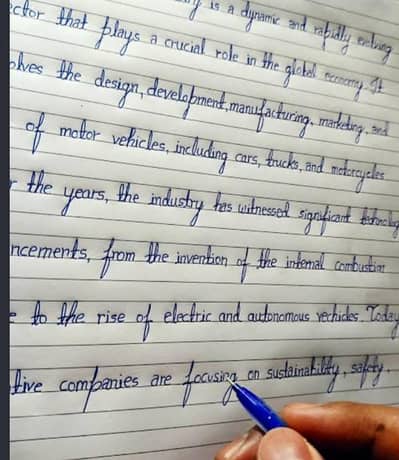 is a dynamic and rapidly evolving
ctor that plays a crucial role in the global economy. It
olves the design, development, manufacturing, marketing, and
of motor vehicles, including cars, trucks, and motorcycles
r the years, the industry has witnessed significant
ncements, from the invention of the internal combustion
e to the rise of electric and autonomous vechicles. Today
tive companies are focusing on sustainability, safety,